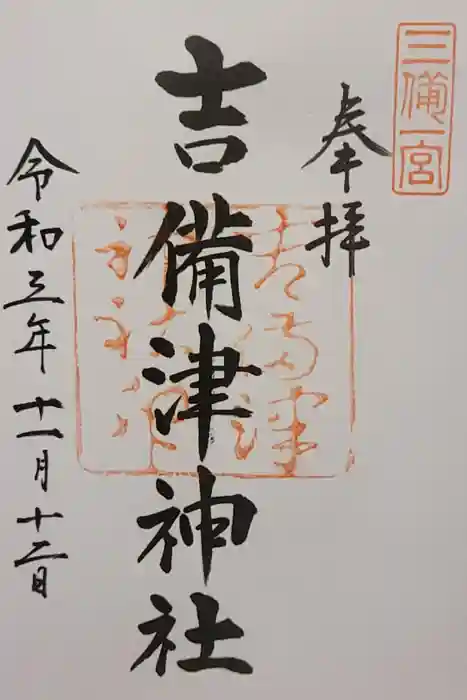 三備一宮
奉拝
吉備津神社
令和三年十一月十二日